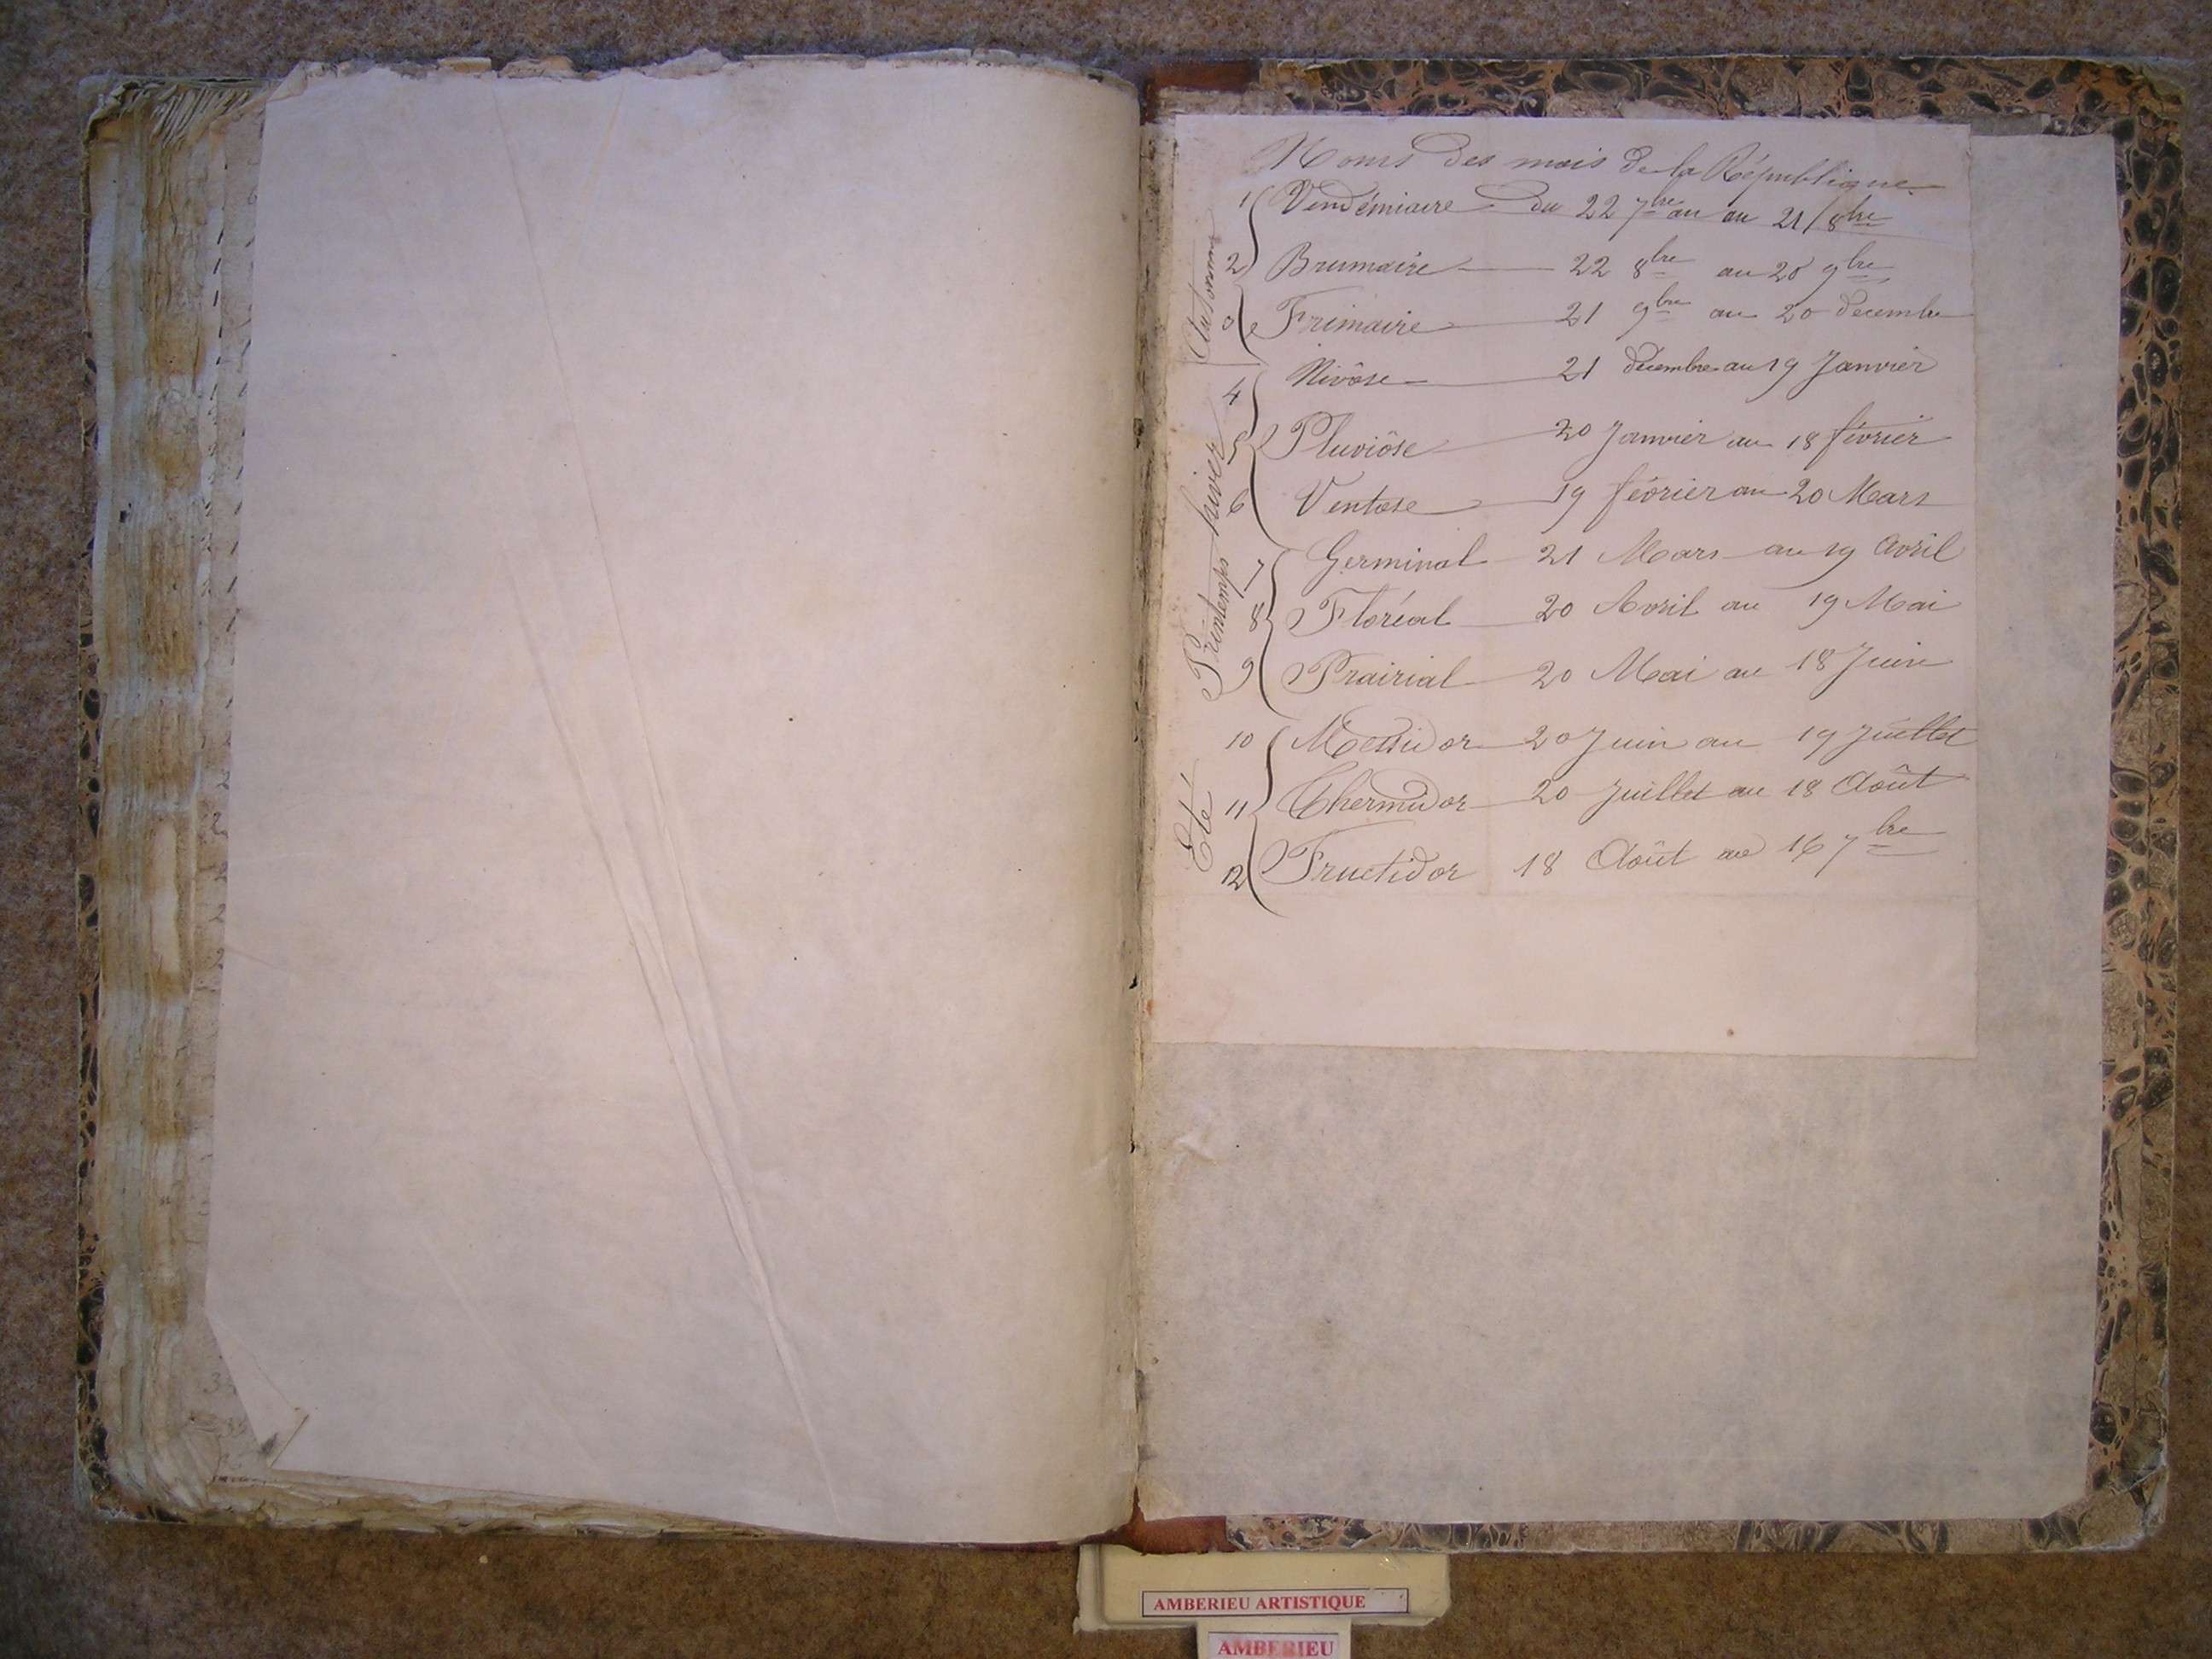 Noms des mois de la République
Automne
1 Vendémiaire du 22 7bre au au 21 8bre
2 Brumaire 22 8bre au 20 9bre
3 Frimaire 21 9bre au 20 décembre
hiver
4 Nivôse 21 décembre au 19 Janvier
5 Pluviôse 20 Janvier au 18 février
6 Ventose 19 février au 20 Mars
Printemps
7 Germinal 21 Mars au 19 Avril
8 Floréal 20 Avril au 19 Mai
9 Prairial 20 Mai au 18 Juin
Eté
10 Messidor 20 Juin au 19 Juillet
11 Thermidor 20 Juillet au 18 Août
12 Fructidor 18 Août au 16 7bre
AMBERIEU ARTISTIQUE
AMBERIEU